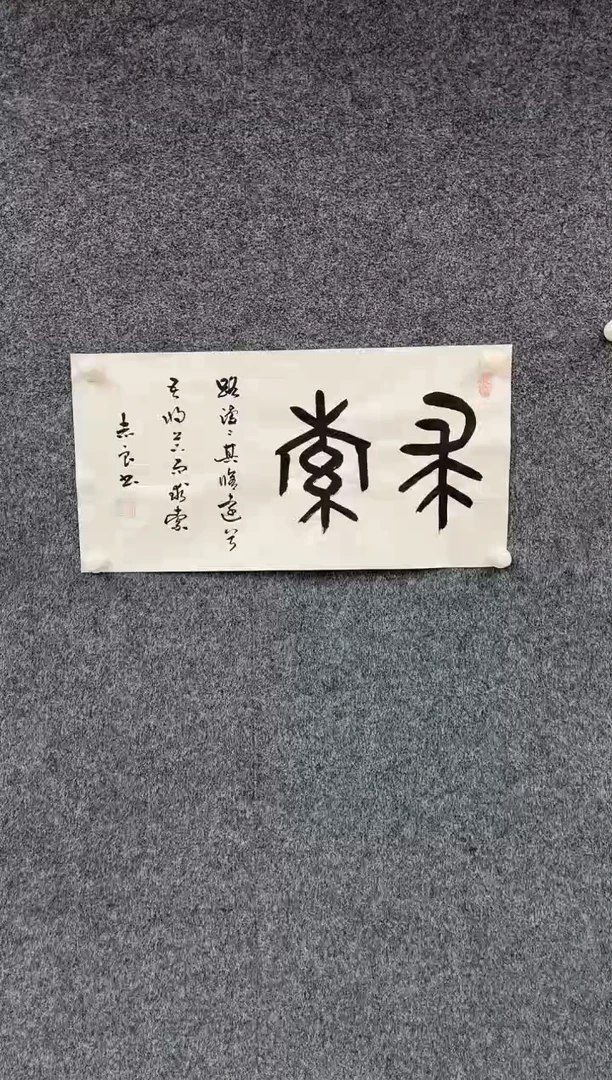 求索
路漫々其脩遠兮
吾将上下而求索
志良书